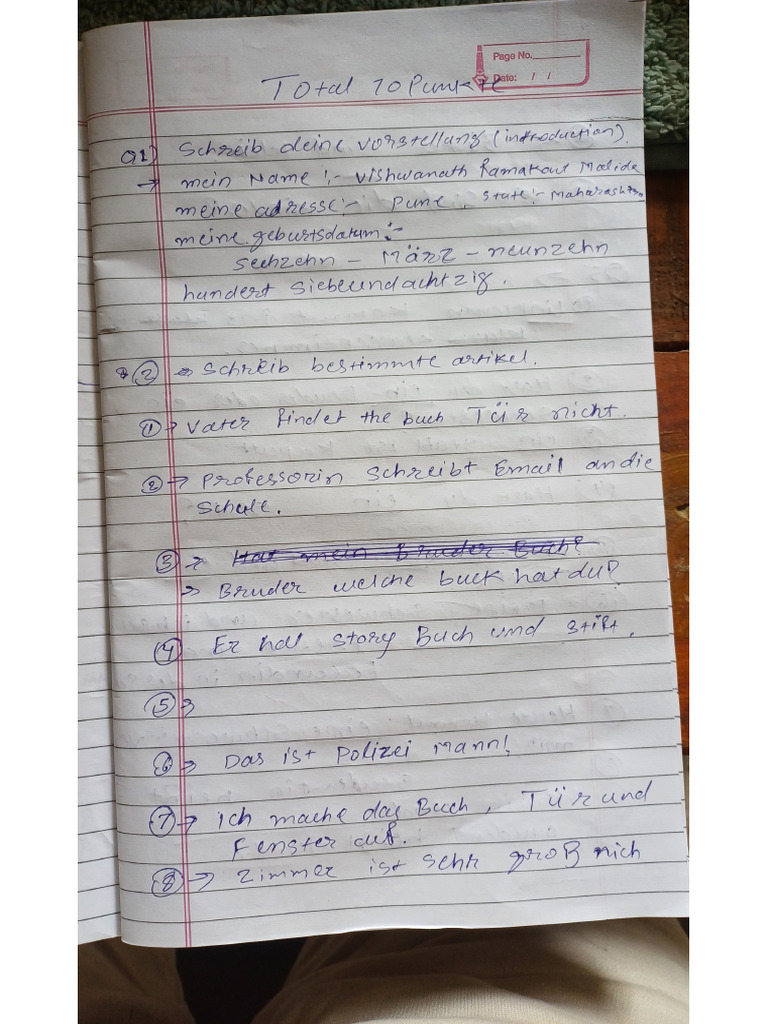 Page No.
Date: / /
Total 10 Punkte
Q1) Schreib deine Vorstellung (introduction).
→ mein Name :- Vishwanath Ramakant
meine adresse:- Pune , State:- Maharashtra
meine geburtsdatum :-
sechzehn - März - neunzehn
hundert siebeundachtzig.
2 → Schreib bestimmte artikel.
1 → Vater findet the buch Tür nicht.
2 → Professorin schreibt Email an die
Schule.
3 → Hat mein Bruder Buch?
→ Bruder welche buck hat du?
4 Er hat story Buch und stift.
5 →
6 → Das ist Polizei Mann!
7 → Ich mache das Buch, Tür und
Fenster auf.
8 → Zimmer ist sehr groß nich